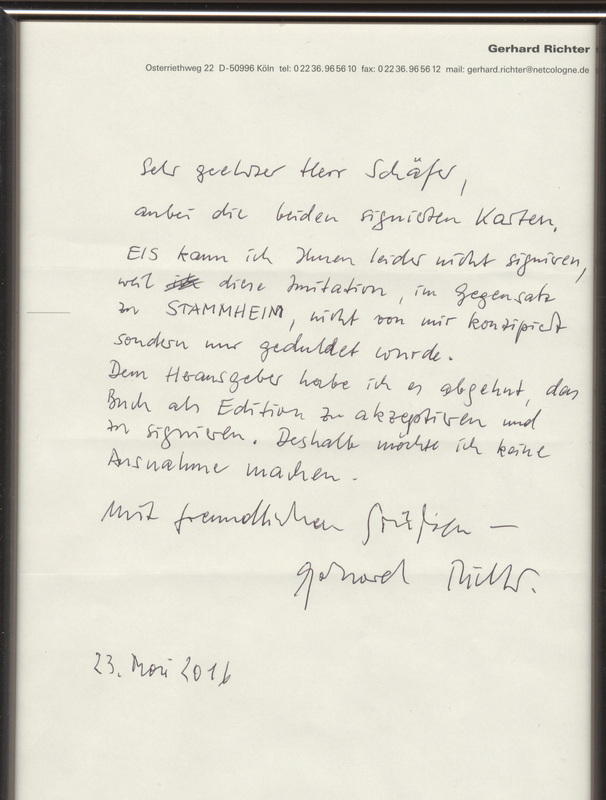 Gerhard Richter
Osterriethweg 22 D-50996 Köln tel: 0 22 36. 96 56 10 fax: 0 22 36. 96 56 12 mail: gerhard.richter@netcologne.de
Sehr geehrter Herr Schäfer,
anbei die beiden signierten Karten.
EIS kann ich Ihnen leider nicht signieren,
weil diese Imitation, im Gegensatz
zu STAMMHEIM, nicht von mir konzipiert
sondern nur geduldet wurde.
Dem Herausgeber habe ich es abgelehnt, das
Buch als Edition zu akzeptieren und
zu signieren. Deshalb möchte ich keine
Ausnahme machen.
Mit freundlichen Grüßen —
Gerhard Richter.
23. Mai 2016